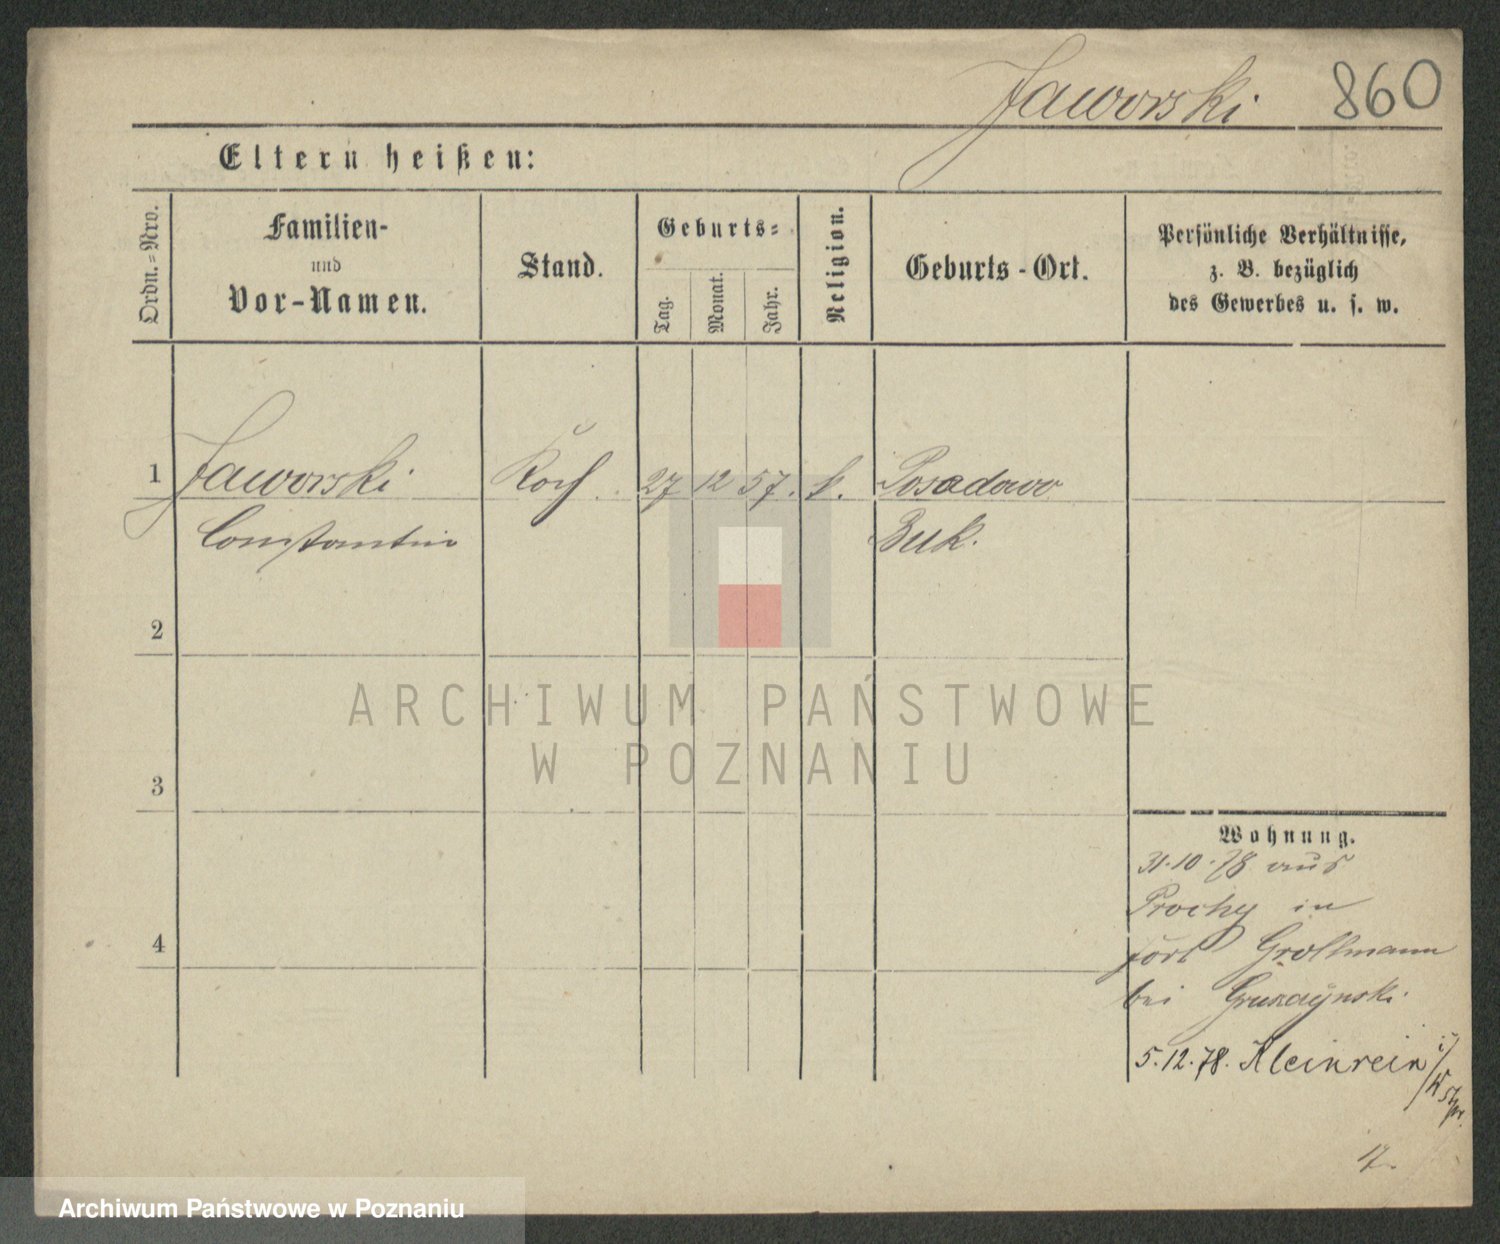 Jaworski 860
Eltern heißen:
Ordn.-Nro.
Familien-
und
Vor-Namen.
Stand.
Geburts-
Tag.
Monat.
Jahr.
Religion.
Geburts-Ort.
Persönliche Verhältnisse,
z. B. bezüglich
des Gewerbes u. s. w.
1 Jaworski Koch 27 12 57. k. Posadowo
Constantin Buk.
2
3
4
Wohnung.
31.10.78 aus
Prochy in
fort Grollmann
bei
5.12.78. Kleinrein
ARCHIWUM PAŃSTWOWE
W POZNANIU
Archiwum Państwowe w Poznaniu